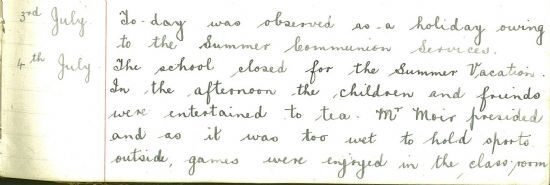 3rd July. To-day was observed as a holiday owing
to the Summer Communion Services.
4th July. The school closed for the Summer Vacation.
In the afternoon the children and friends
were entertained to tea. Mr Moir presided
and as it was too wet to hold sports
outside, games were enjoyed in the class-room